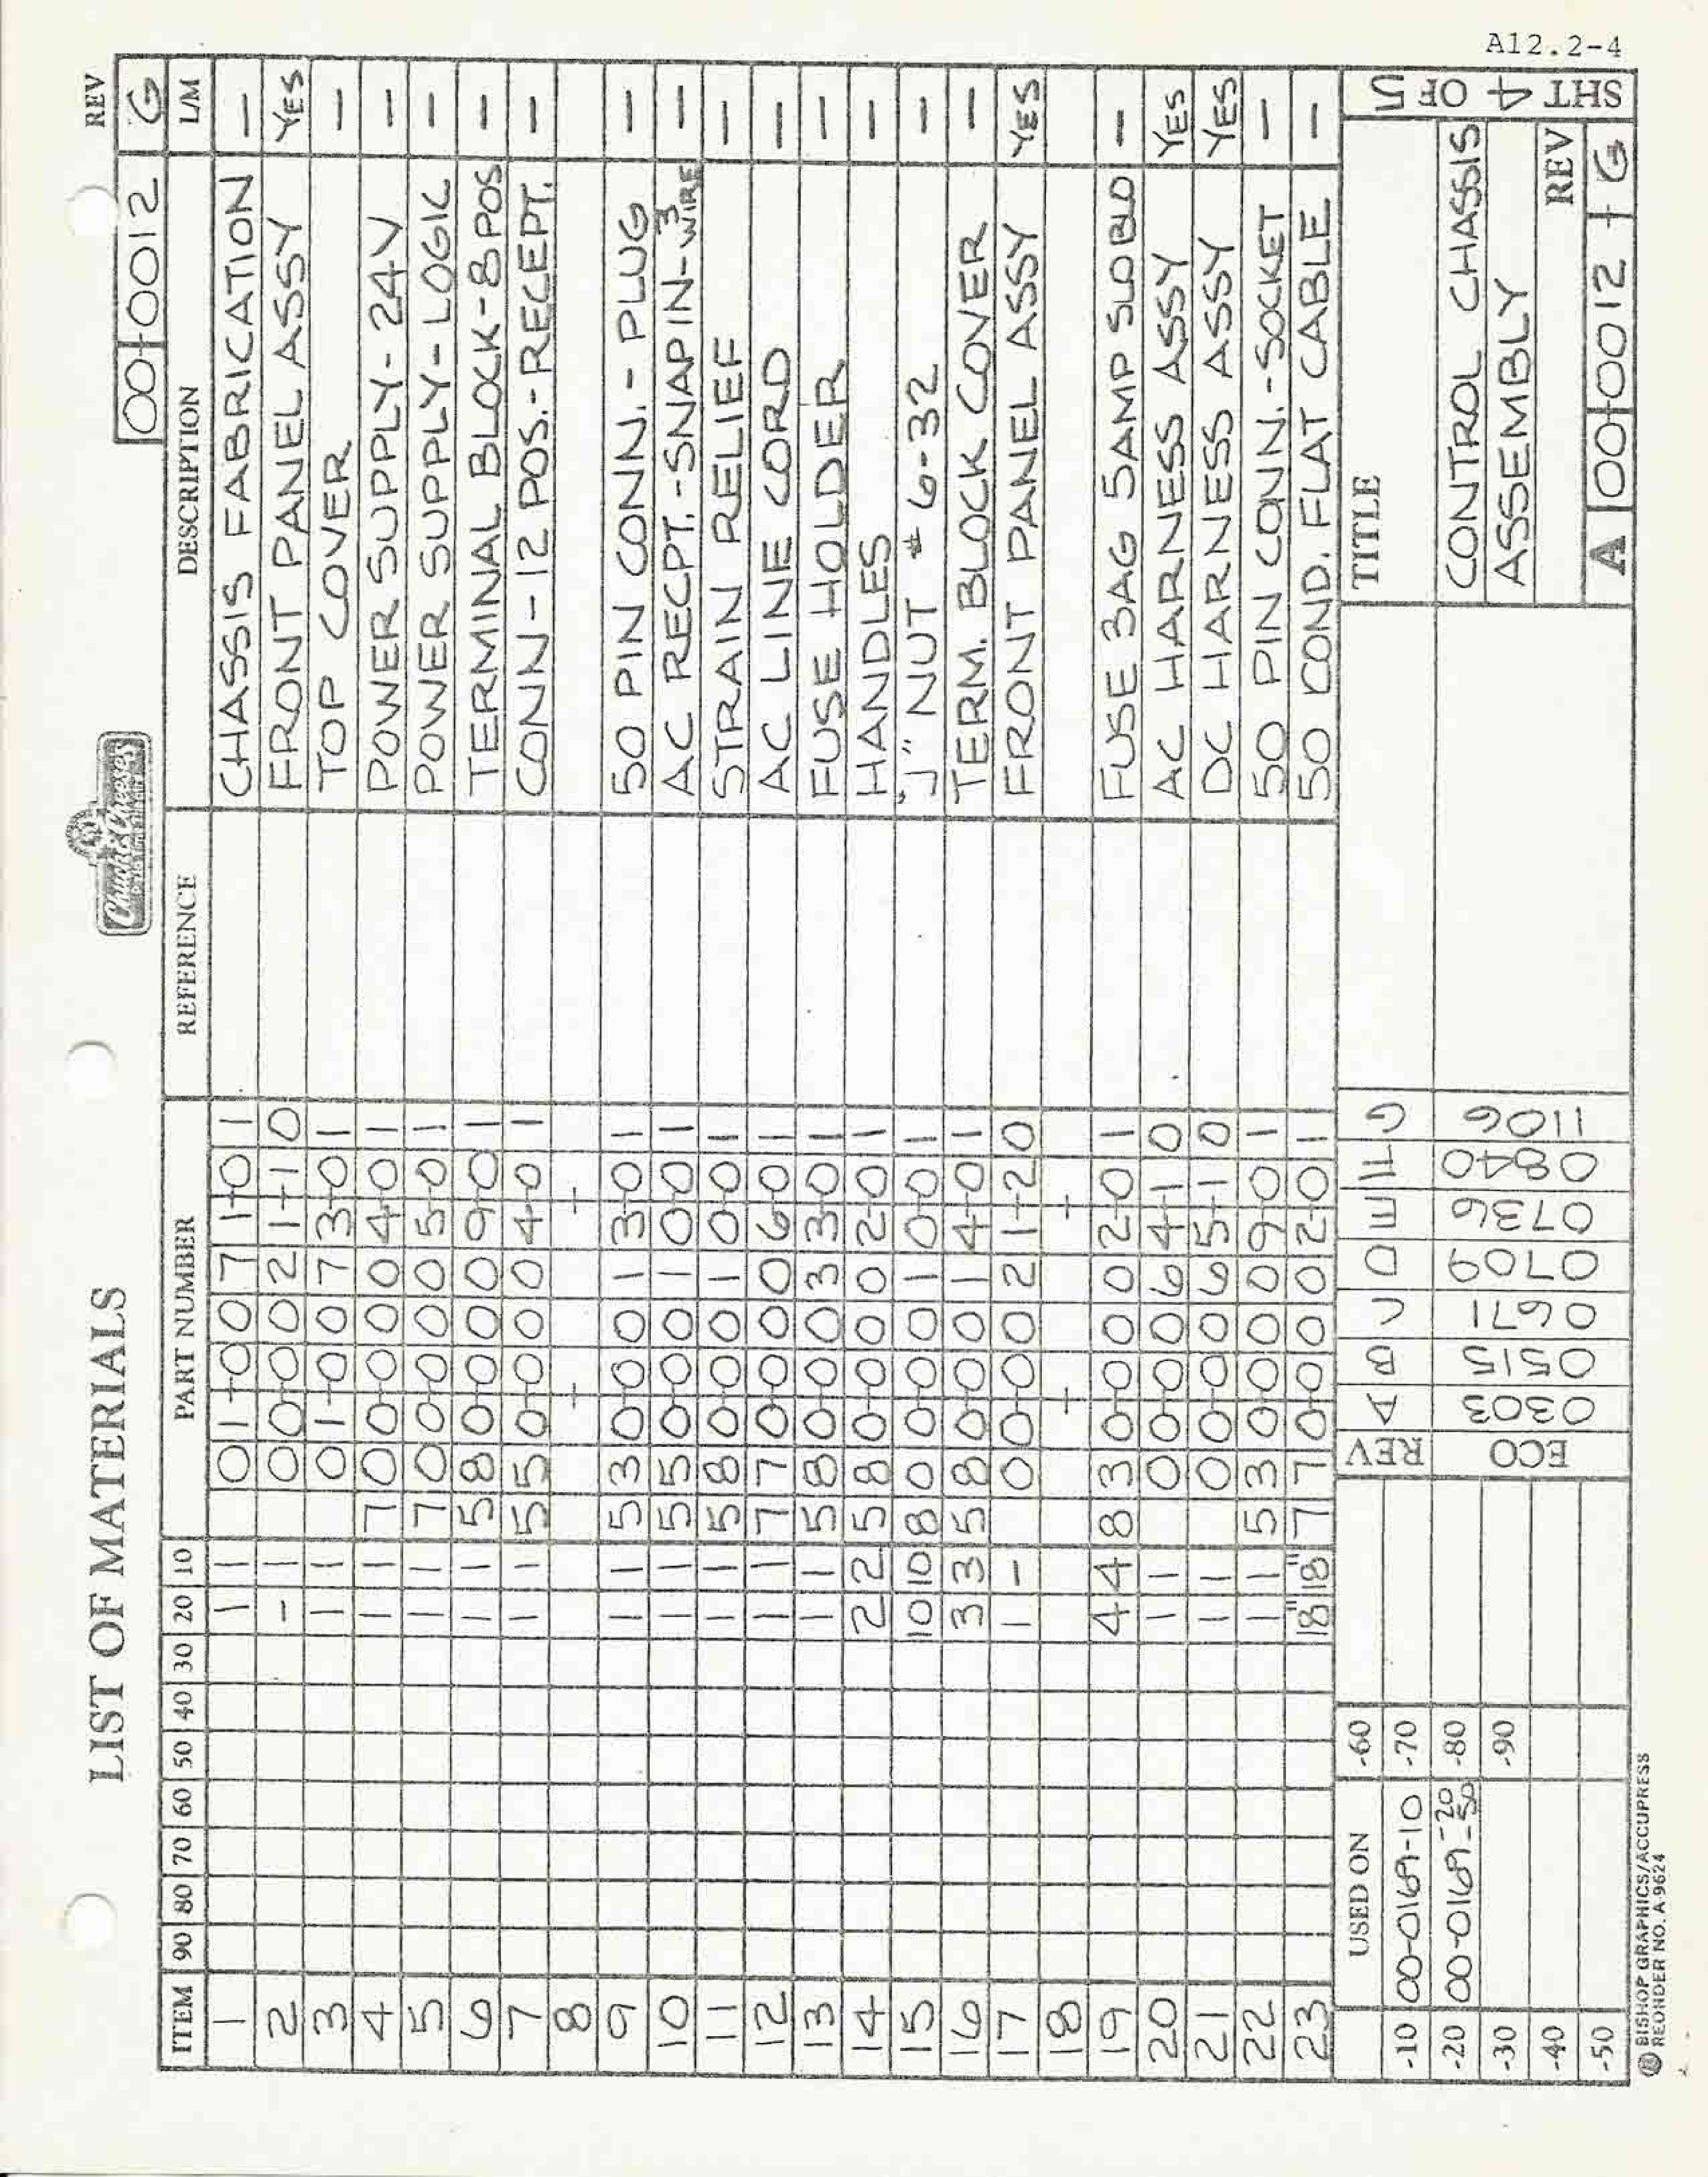 A12.2-4
LIST OF MATERIALS
Chuck E. Cheese's
REV
00-0012 G
ITEM 90 80 70 60 50 40 30 20 10 PART NUMBER REFERENCE DESCRIPTION L/M
1 1 1 01-0071-01 CHASSIS FABRICATION —
2 - 1 00-0021-10 FRONT PANEL ASSY YES
3 1 1 01-0073-01 TOP COVER —
4 1 1 700-0004-01 POWER SUPPLY-24V —
5 1 1 700-0005-01 POWER SUPPLY-LOGIC —
6 1 1 580-0009-01 TERMINAL BLOCK-8POS —
7 1 1 550-0004-01 CONN-12 POS.-RECEPT. —
8
9 1 1 530-0013-01 50 PIN CONN.-PLUG —
10 1 1 550-0010-01 AC RECPT.-SNAP IN-3 WIRE —
11 1 1 580-0010-01 STRAIN RELIEF —
12 1 1 770-0006-01 AC LINE CORD —
13 1 1 580-0033-01 FUSE HOLDER —
14 2 2 580-0002-01 HANDLES —
15 10 10 800-0010-01 "J" NUT #6-32 —
16 3 3 580-0014-01 TERM. BLOCK COVER —
17 1 - 00-0021-20 FRONT PANEL ASSY YES
18
19 4 4 830-0002-01 FUSE 3AG 5AMP SLO BLO —
20 1 1 00-0064-10 AC HARNESS ASSY YES
21 1 1 00-0065-10 DC HARNESS ASSY YES
22 1 1 530-0009-01 50 PIN CONN.-SOCKET —
23 18" 18" 770-0002-01 50 COND. FLAT CABLE —
USED ON
-10 00-0169-10
-20 00-0169-20 -50
-30
-40
-50
-60
-70
-80
-90
REV A B C D E F G
ECO 0303 0515 0671 0709 0736 0840 1106
TITLE
CONTROL CHASSIS
ASSEMBLY
REV
A 00-0012 - G
SHT 4 OF 5
BISHOP GRAPHICS/ACCUPRESS
REORDER NO. A-9624